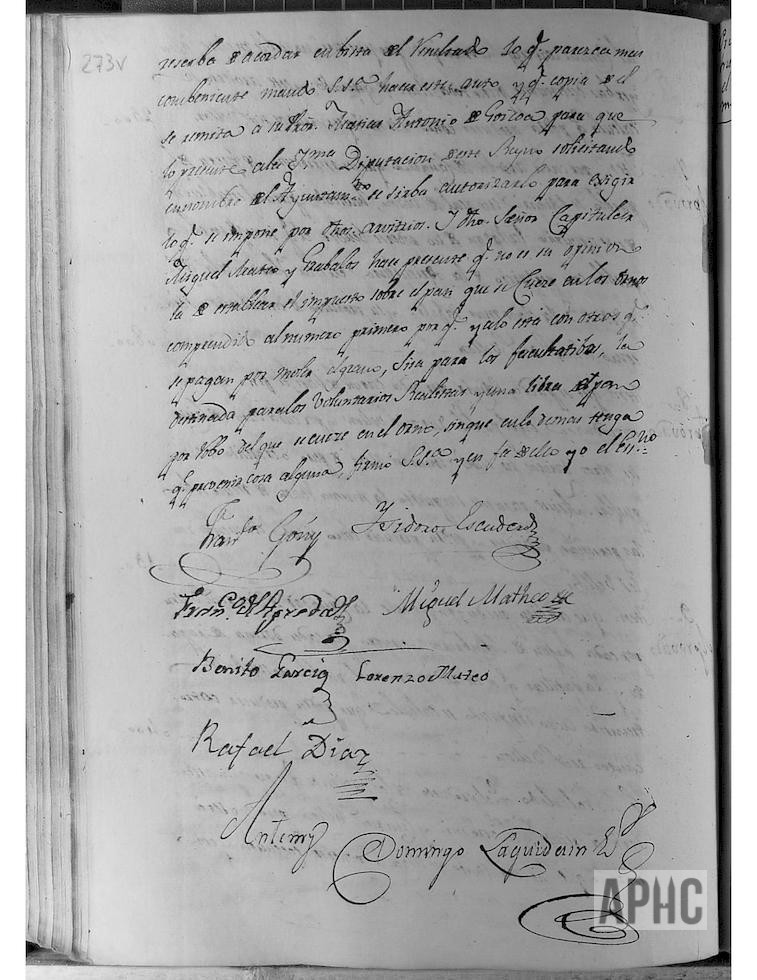 273v
reserba de acordar en bista del resultado lo q.e parezca mas
combeniente mando S.S.a hacer este auto y q.e copia de el
se remita a su Pror. Antonio de Goicoa para que
lo presente a la Yma Diputacion de este Reyno solicitando
en nombre del Ayuntam.to se sirba autorizarlo para exigir
lo q.e se impone por dhos. arvitrios. Y dho. Señor Capitular
Miguel Mateo y Grabalos hace presente q.e no es su opinion
la de establecer el impuesto sobre el pan que se Cueze en los ornos
comprendido al numero primero por q.e ya lo está con otros q.e
se pagan por moler el grano, sisa para los facultatibos, la
destinada para los Voluntarios Realistas y una libra de pan
por robo del que se cueze en el orno, sin que en lo demas tenga
q.e prevenir cosa alguna, firmó S.S.a y en fe de ello yo el Ess.no
Goñy Ysidoro Escudero
Fran.co de Agreda Miguel Matheo
Benito Garcia Lorenzo Mateo
Rafael Diaz
Antemy
Domingo Laquidain
APHC